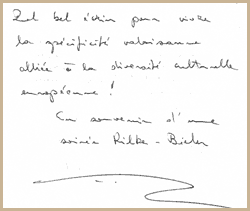 Quel bel écrin pour vivre
la spécificité valaisanne
alliée à la diversité culturelle
européenne !
En souvenir d'une
soirée Rilke - Bieler